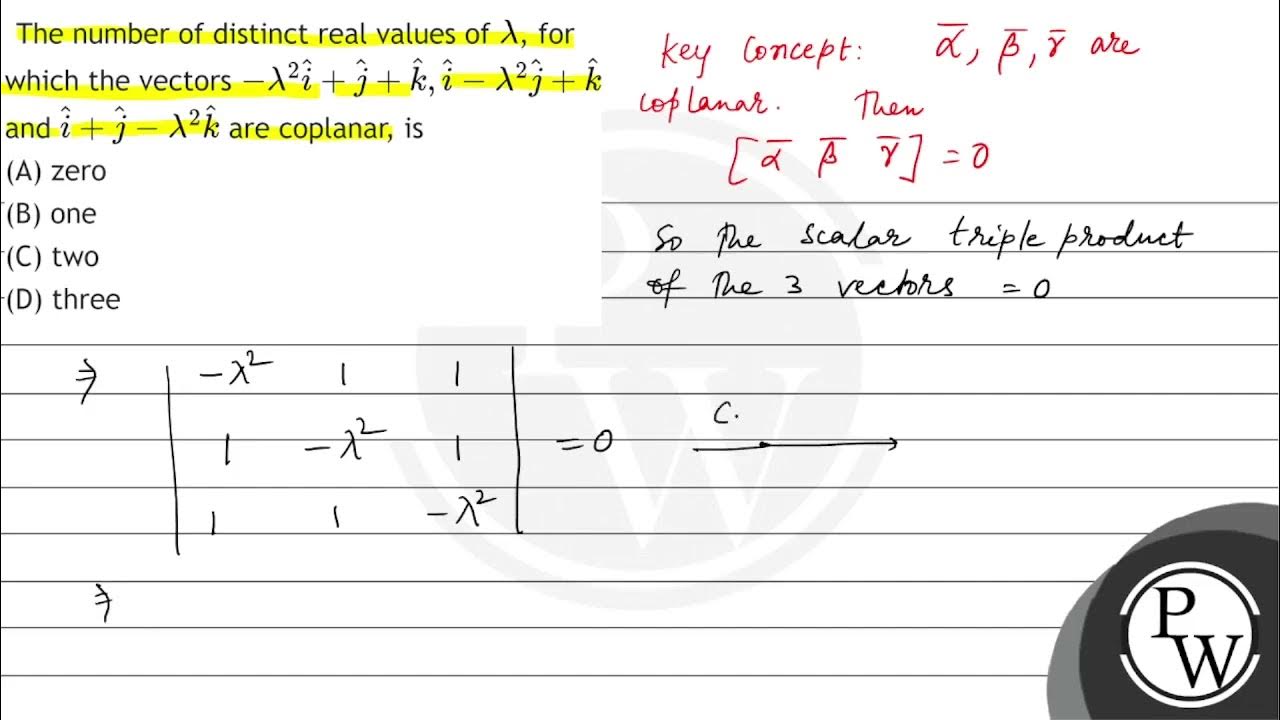 The number of distinct real values of λ, for
which the vectors −λ²î + ĵ + k̂, î − λ²ĵ + k̂
and î + ĵ − λ²k̂ are coplanar, is
(A) zero
(B) one
(C) two
(D) three
Key Concept: ᾱ, β̄, γ̄ are
coplanar. Then
[ᾱ β̄ γ̄] = 0
So The scalar triple product
of The 3 vectors = 0
⇒ | −λ² 1 1 |
| 1 −λ² 1 | = 0 C.
| 1 1 −λ² |
⇒
PW
PW